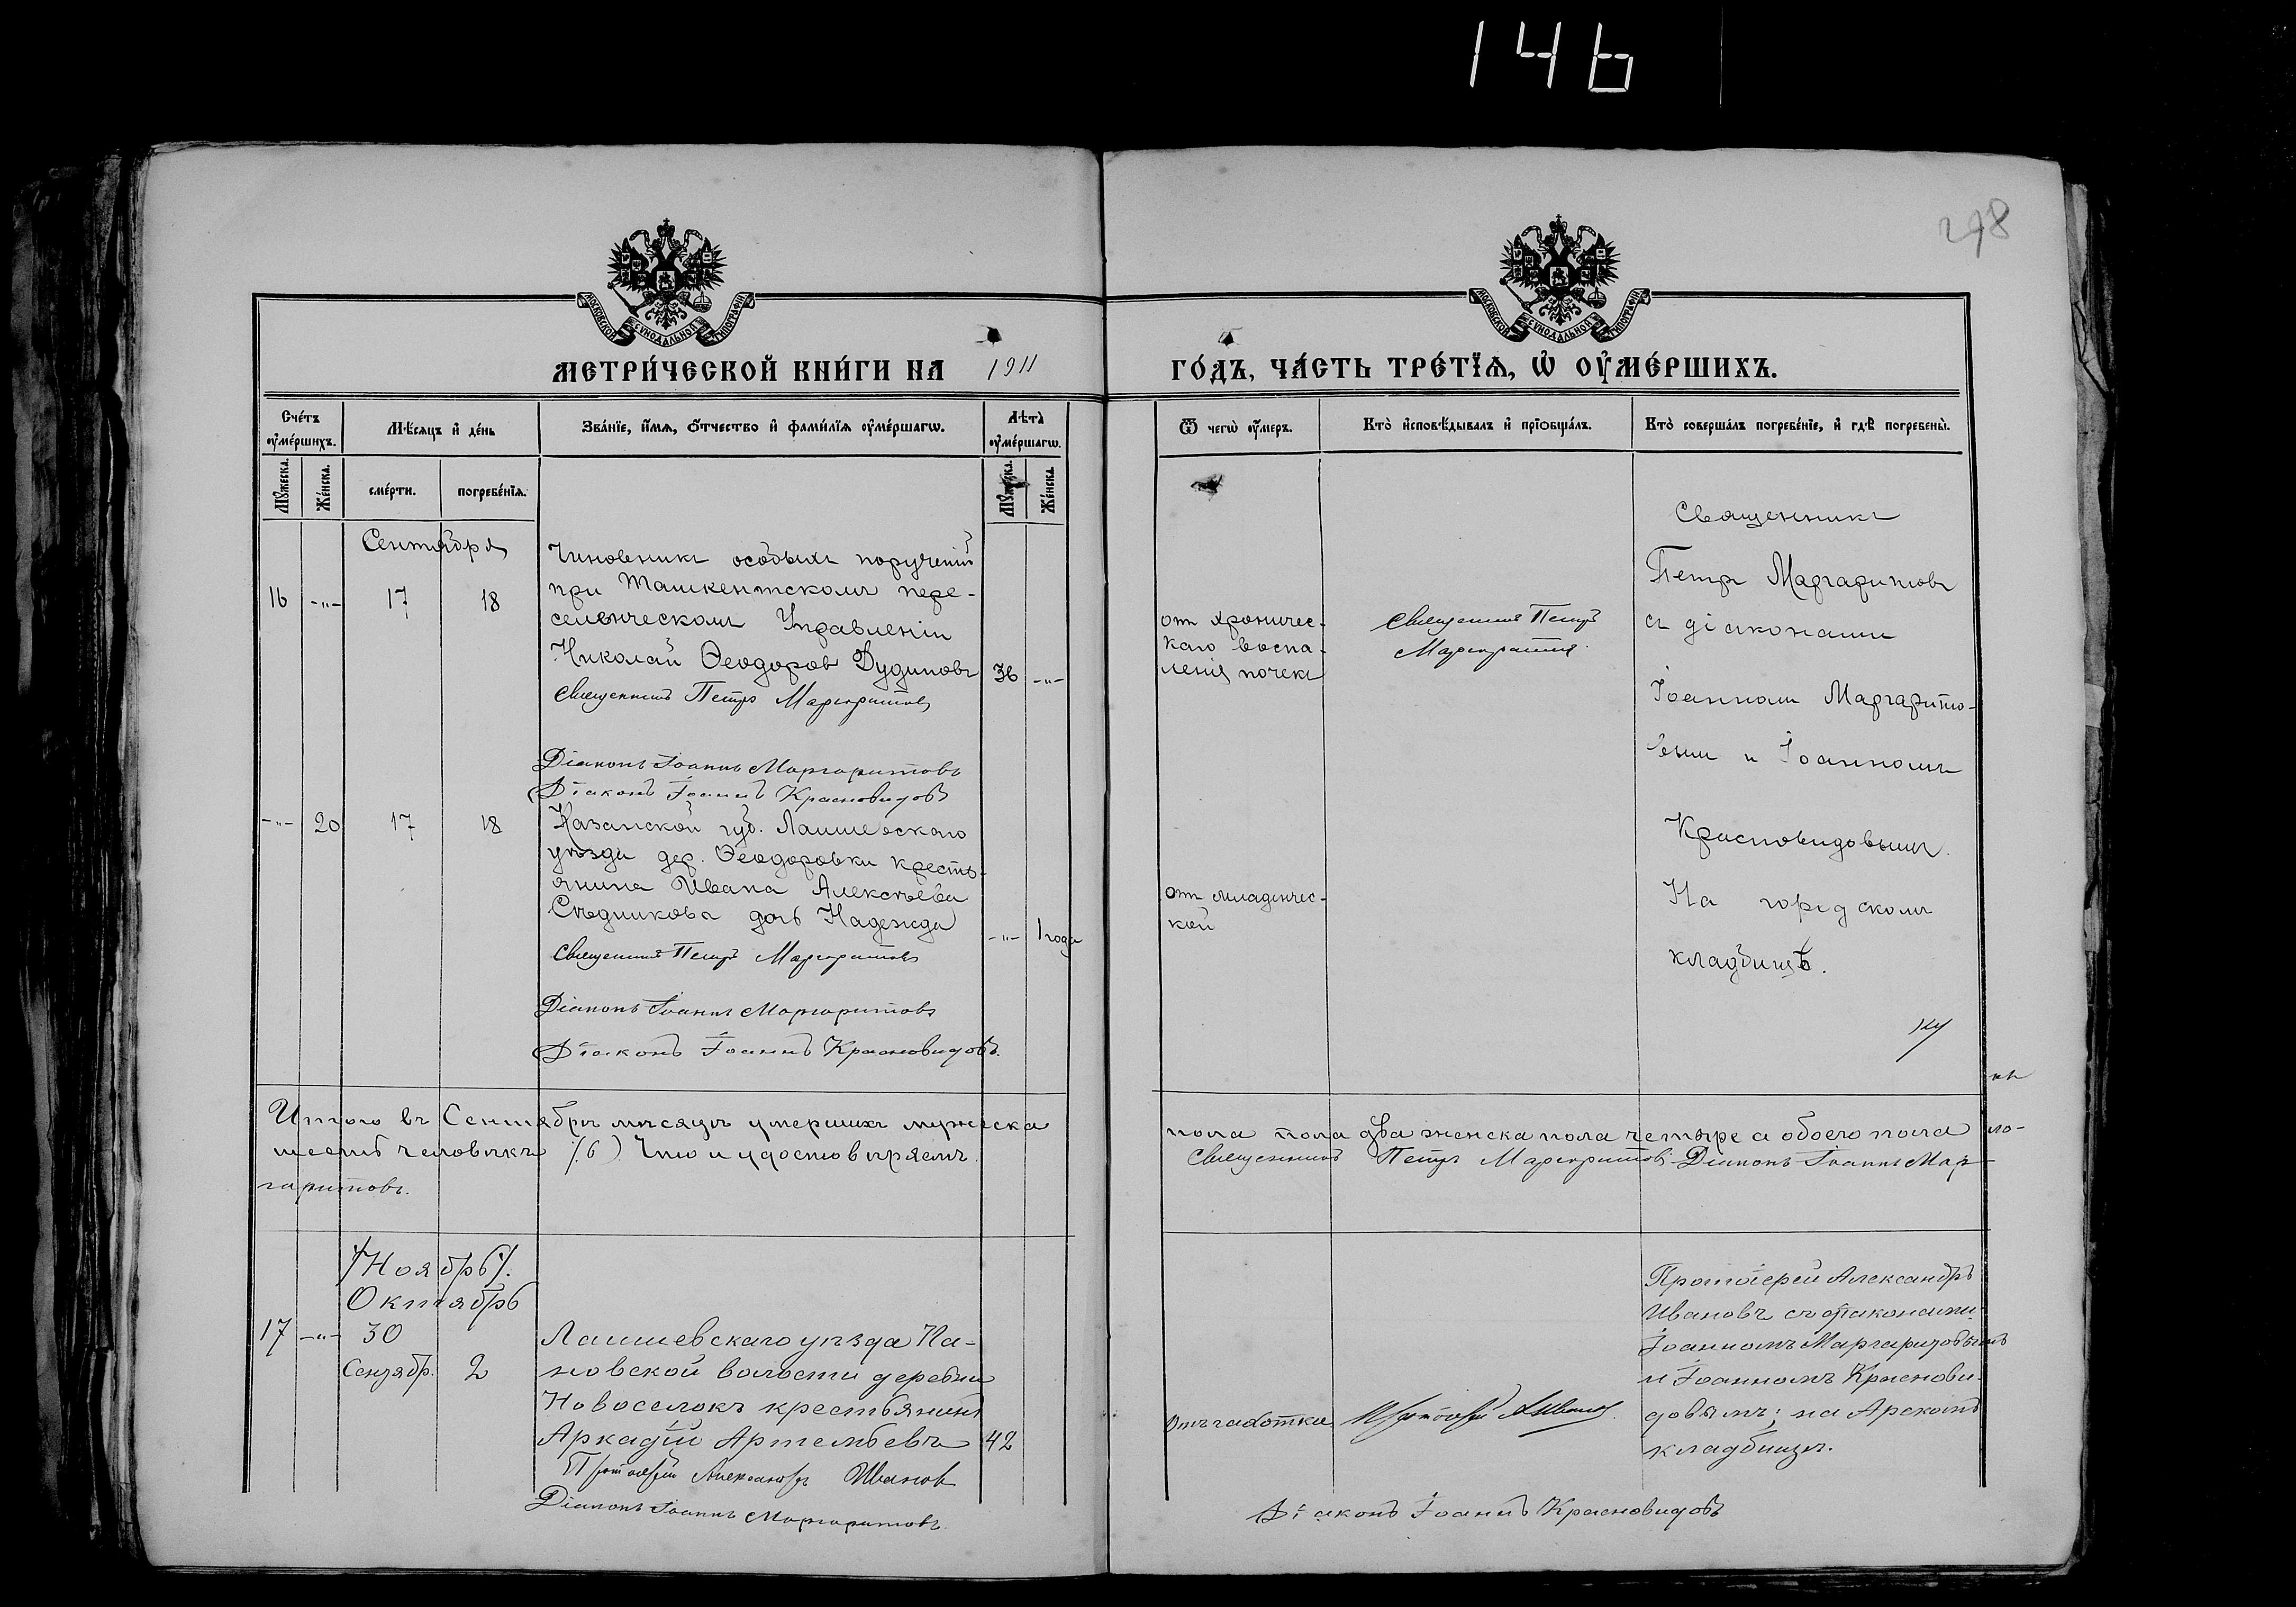 146
278
МОСКОВСКОЙ СѴНОДАЛЬНОЙ ТИПОГРАФІИ
МОСКОВСКОЙ СѴНОДАЛЬНОЙ ТИПОГРАФІИ
МЕТРИ́ЧЕСКОЙ КНИ́ГИ НА 1911 ГО́ДЪ, ЧА́СТЬ ТРЕ́ТЇѦ, Ѡ҆ ОУ҆МЕ́РШИХЪ.
Сче́тъ оу҆ме́ршихъ.
Мꙋ́жеска.
Же́нска.
Мѣ́сяцъ и҆ де́нь
сме́рти.
погребе́нїѧ.
Зва́нїе, и҆́мѧ, ѻ҆́тчество и҆ фами́лїѧ оу҆ме́ршагѡ.
Лѣ̀та оу҆ме́ршагѡ.
Мꙋ́жеска.
Же́нска.
Ѿ чегѡ̀ оу҆́меръ.
Кто̀ и҆сповѣ́дывалъ и҆ прїобща́лъ.
Кто̀ соверша́лъ погребе́нїе, и҆ гдѣ̀ погребены̀.
Сентября
16 -"- 17 18
Чиновникъ особыхъ порученій
при Ташкентскомъ пере-
селенческомъ Управленіи
Николай Ѳеодоровъ Дудиновъ
36 -"-
Священникъ Петръ Маргаритовъ
Діаконъ Іоаннъ Маргаритовъ
Діаконъ Іоаннъ Красновидовъ
от хроничес-
каго воспа-
ленія почекъ
Священникъ Петръ
Маргаритовъ.
Священникъ
Петръ Маргаритовъ
съ діаконами
Іоанномъ Маргарито-
вым и Іоанномъ
Красновидовымъ.
На городскомъ
кладбищѣ.
-"- 20 17 18
Казанской губ. Лаишевскаго
уѣзда дер. Ѳеодоровки кресть-
янина Ивана Алексѣева
Слѣдникова дочь Надежда
-"- 1 года
Священникъ Петръ Маргаритовъ
Діаконъ Іоаннъ Маргаритовъ
Діаконъ Іоаннъ Красновидовъ.
от младенчес-
кой
Итого въ Сентябрѣ мѣсяцѣ умершихъ мужеска пола пола два женска пола четыре а обоего пола
шесть человѣкъ /6) Что и удостовѣряемъ. Священникъ Петръ Маргаритовъ Діаконъ Іоаннъ Мар-
гаритовъ.
/Ноябрь/.
Октябрь
17 -"- 30
Сентябр. 2
Лаишевскаго уѣзда Па-
новской волости деревни
Новоселокъ крестьянинъ
Аркадій Артемьевъ 42
Протоіерей Александръ Иванов
Діаконъ Іоаннъ Маргаритовъ.
Отъ чахотки
Протоіерей А. Иванов.
Протоіерей Александръ
Ивановъ съ діаконами:
Іоанномъ Маргаритовымъ
и Іоанномъ Краснови-
довымъ; на Арскомъ
кладбищѣ.
Діаконъ Іоаннъ Красновидовъ